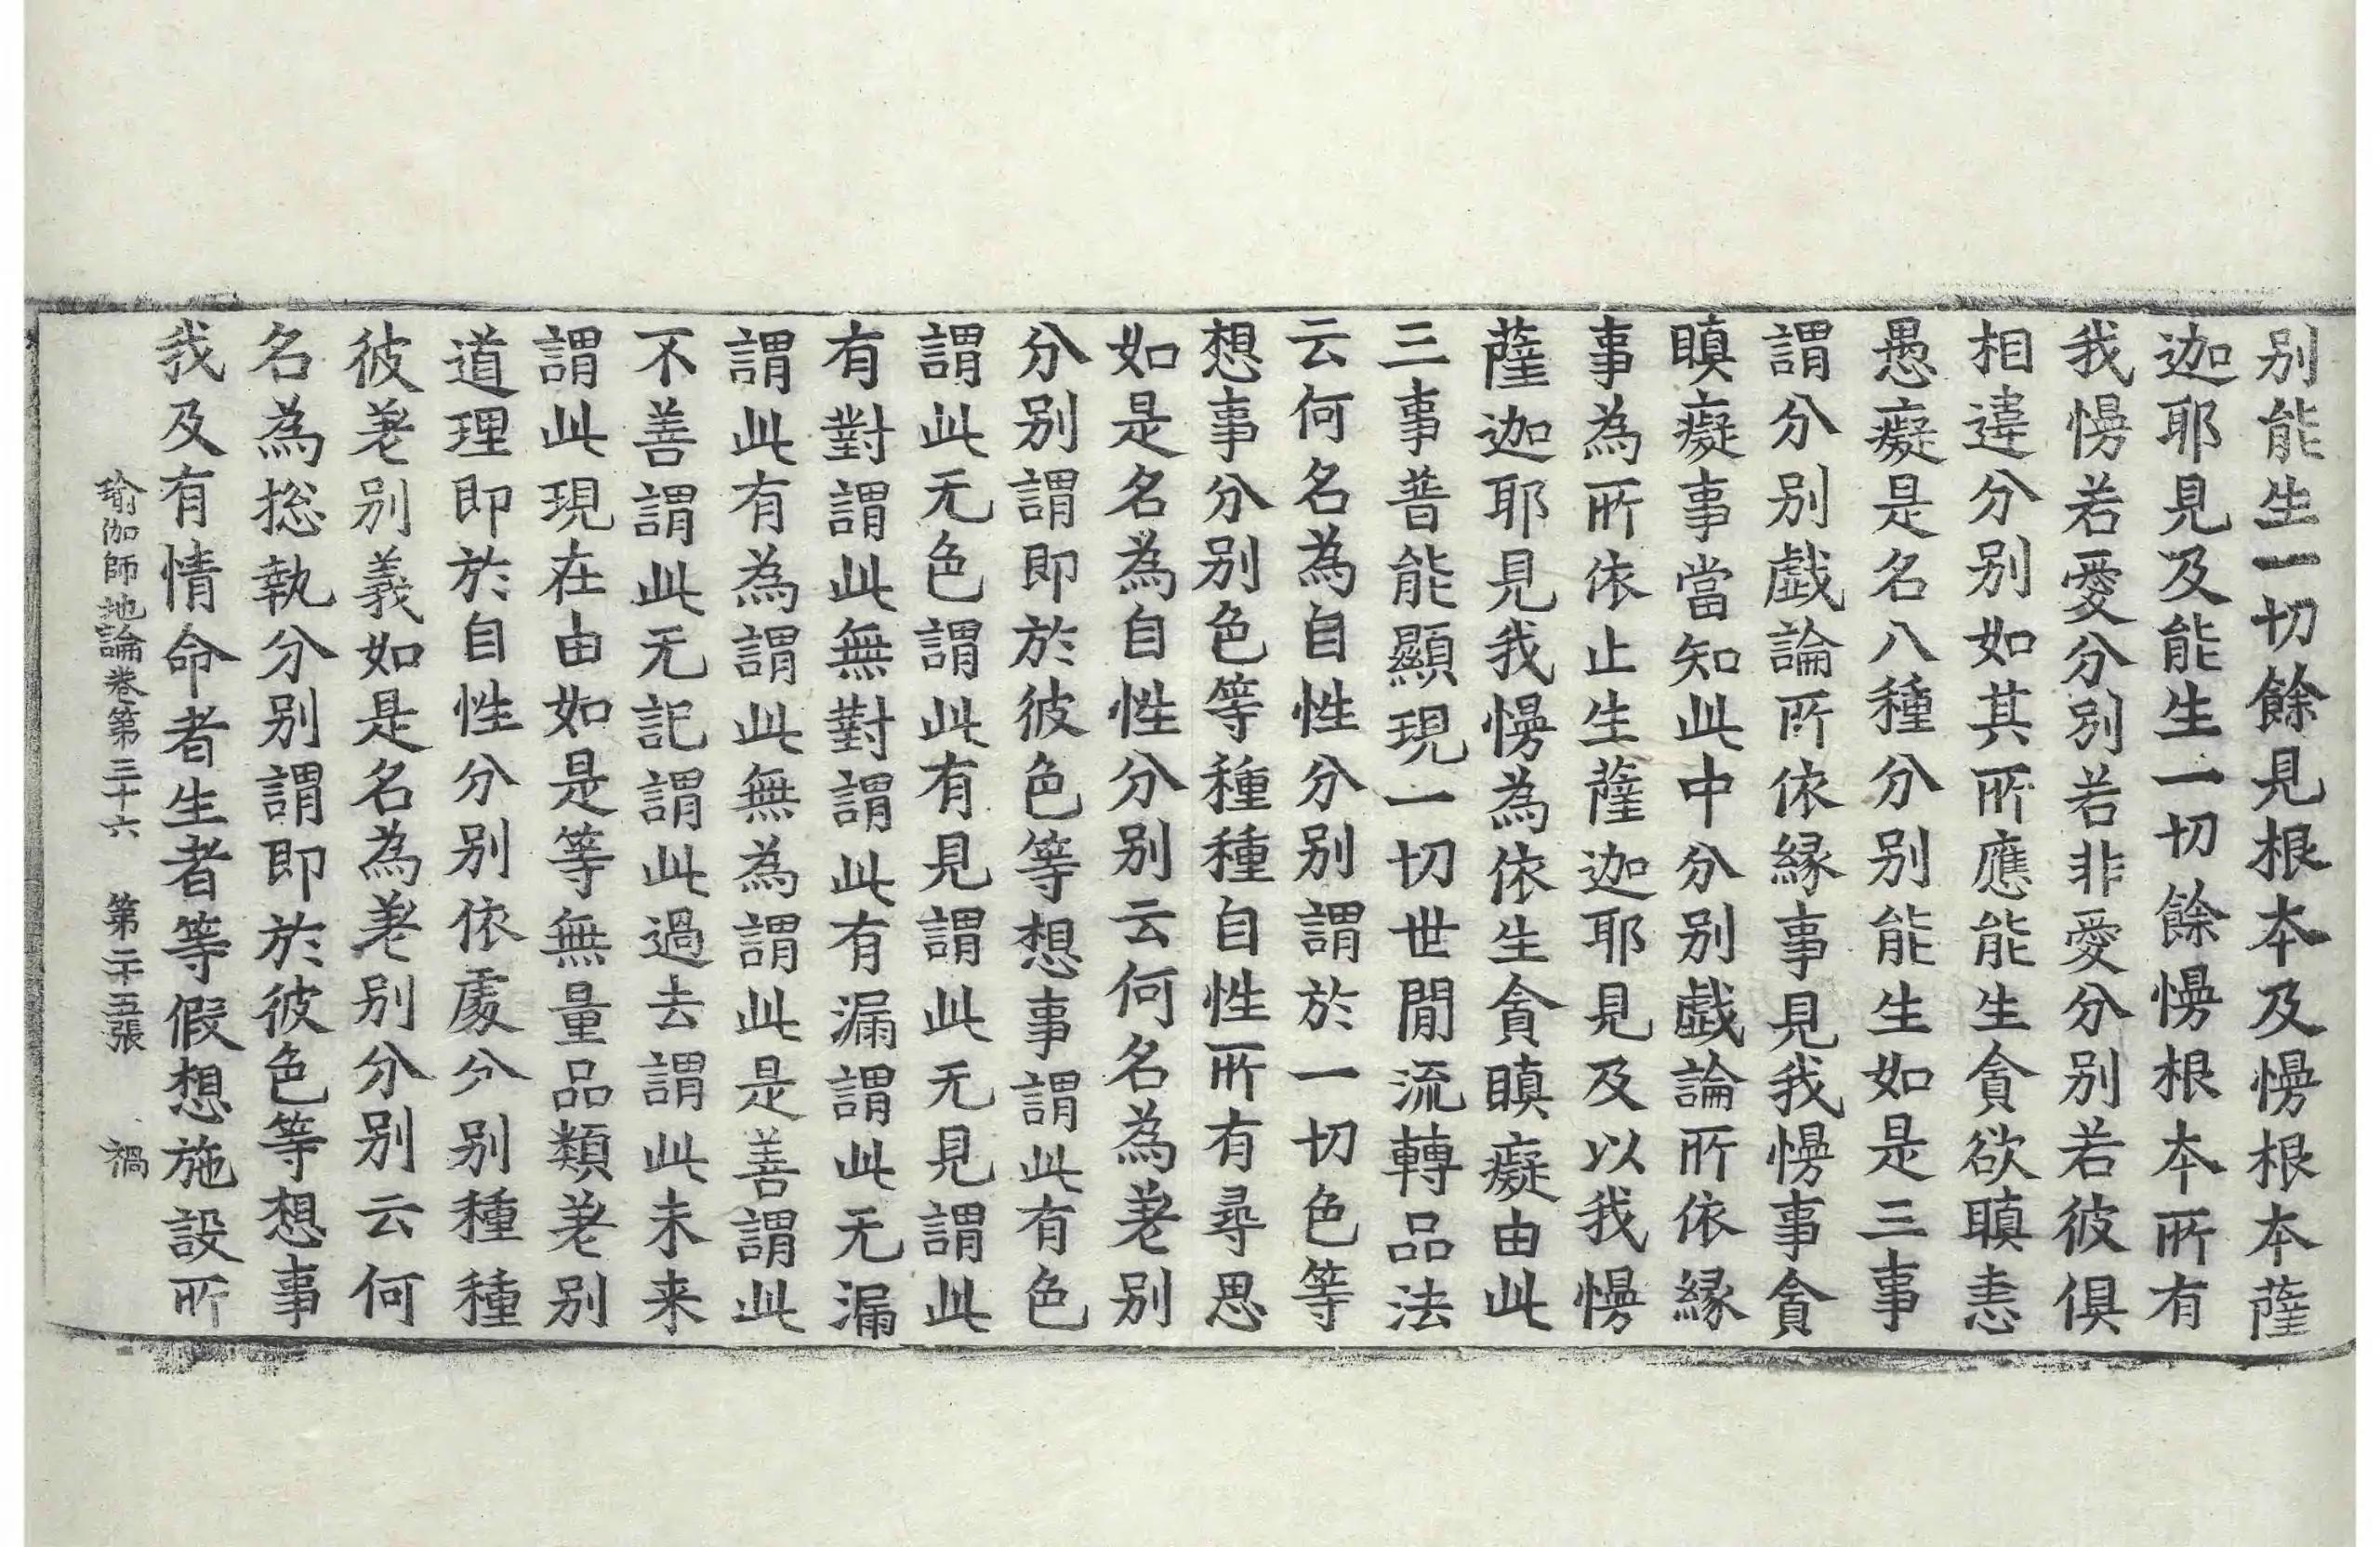 别能生一切餘見根本及慢根本薩
迦耶見及能生一切餘慢根本所有
我慢若愛分别若非愛分别若彼俱
相違分别如其所應能生貪欲瞋恚
愚癡是名八種分别能生如是三事
謂分别戲論所依緣事見我慢事貪
瞋癡事當知此中分别戲論所依緣
事為所依止生薩迦耶見及以我慢
薩迦耶見我慢為依生貪瞋癡由此
三事普能顯現一切世閒流轉品法
云何名為自性分别謂於一切色等
想事分别色等種種自性所有尋思
如是名為自性分别云何名為差别
分别謂即於彼色等想事謂此有色
謂此无色謂此有見謂此无見謂此
有對謂此無對謂此有漏謂此无漏
謂此有為謂此無為謂此是善謂此
不善謂此无記謂此過去謂此未来
謂此現在由如是等無量品類差别
道理即於自性分别依處分别種種
彼差别義如是名為差别分别云何
名為捴執分别謂即於彼色等想事
我及有情命者生者等假想施設所
瑜伽師地論卷第三十六　第二十五張　禍